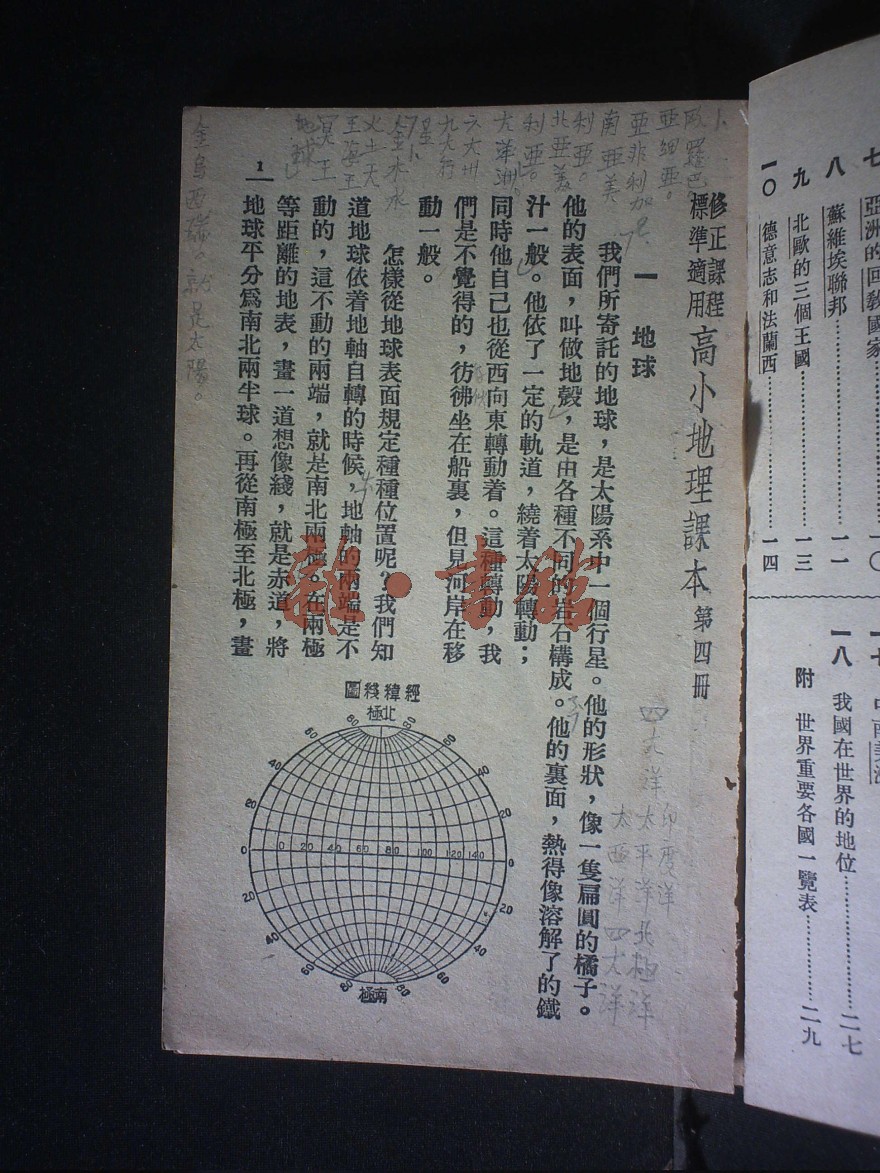 七 亞洲的回教國家……一〇
八 蘇維埃聯邦……一一
九 北歐的三個王國……一三
一〇 德意志和法蘭西……一四
一八 我國在世界的地位……二七
附 世界重要各國一覽表……二九
修正課程
標準適用
高小地理課本 第四冊
一 地球
我們所寄託的地球，是太陽系中一個行星。他的形狀，像一隻扁圓的橘子。
他的表面，叫做地殼，是由各種不同的岩石構成。他的裏面，熱得像溶解了的鐵
汁一般。他依了一定的軌道，繞着太陽轉動；
同時他自己也從西向東轉動着。這種轉動，我
們是不覺得的，彷彿坐在船裏，但見河岸在移
動一般。
怎樣從地球表面規定種種位置呢？我們知
道地球依着地軸自轉的時候，地軸的兩端是不
動的，這不動的兩端，就是南北兩極。在兩極
等距離的地表，畫一道想像綫，就是赤道，將
地球平分爲南北兩半球。再從南極至北極，畫
1
圖綫緯經
極北
80 80
60 60
40 40
20 20
0 0 20 40 60 80 100 120 140 0
20 20
40 40
60 60
80 80
極南
歐羅巴。
亞細亞。
亞非利加
南亞美
利亞。
北亞美
利亞。
大洋洲。
六大州
九大行
星
金木水
火土天
王海王
冥王
地球
金烏西墜。就是太陽。
四大洋
印度洋
太平洋北極洋
太西洋四大洋
龍·書館